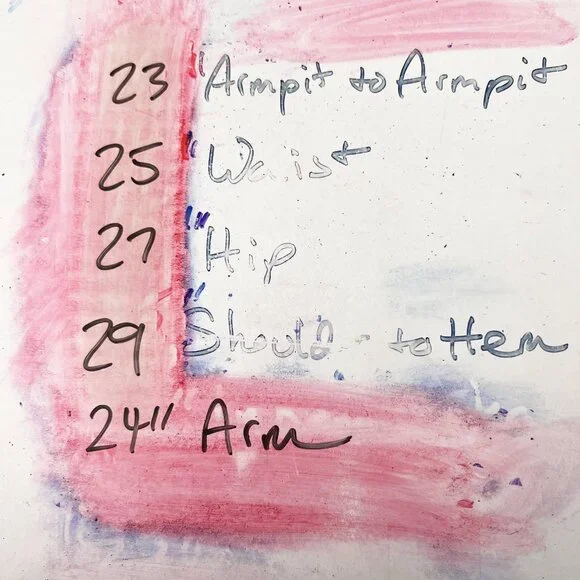 23 "Armpit to Armpit
25 "Waist
27 "Hip
29 "Should - to Hem
24" Arm